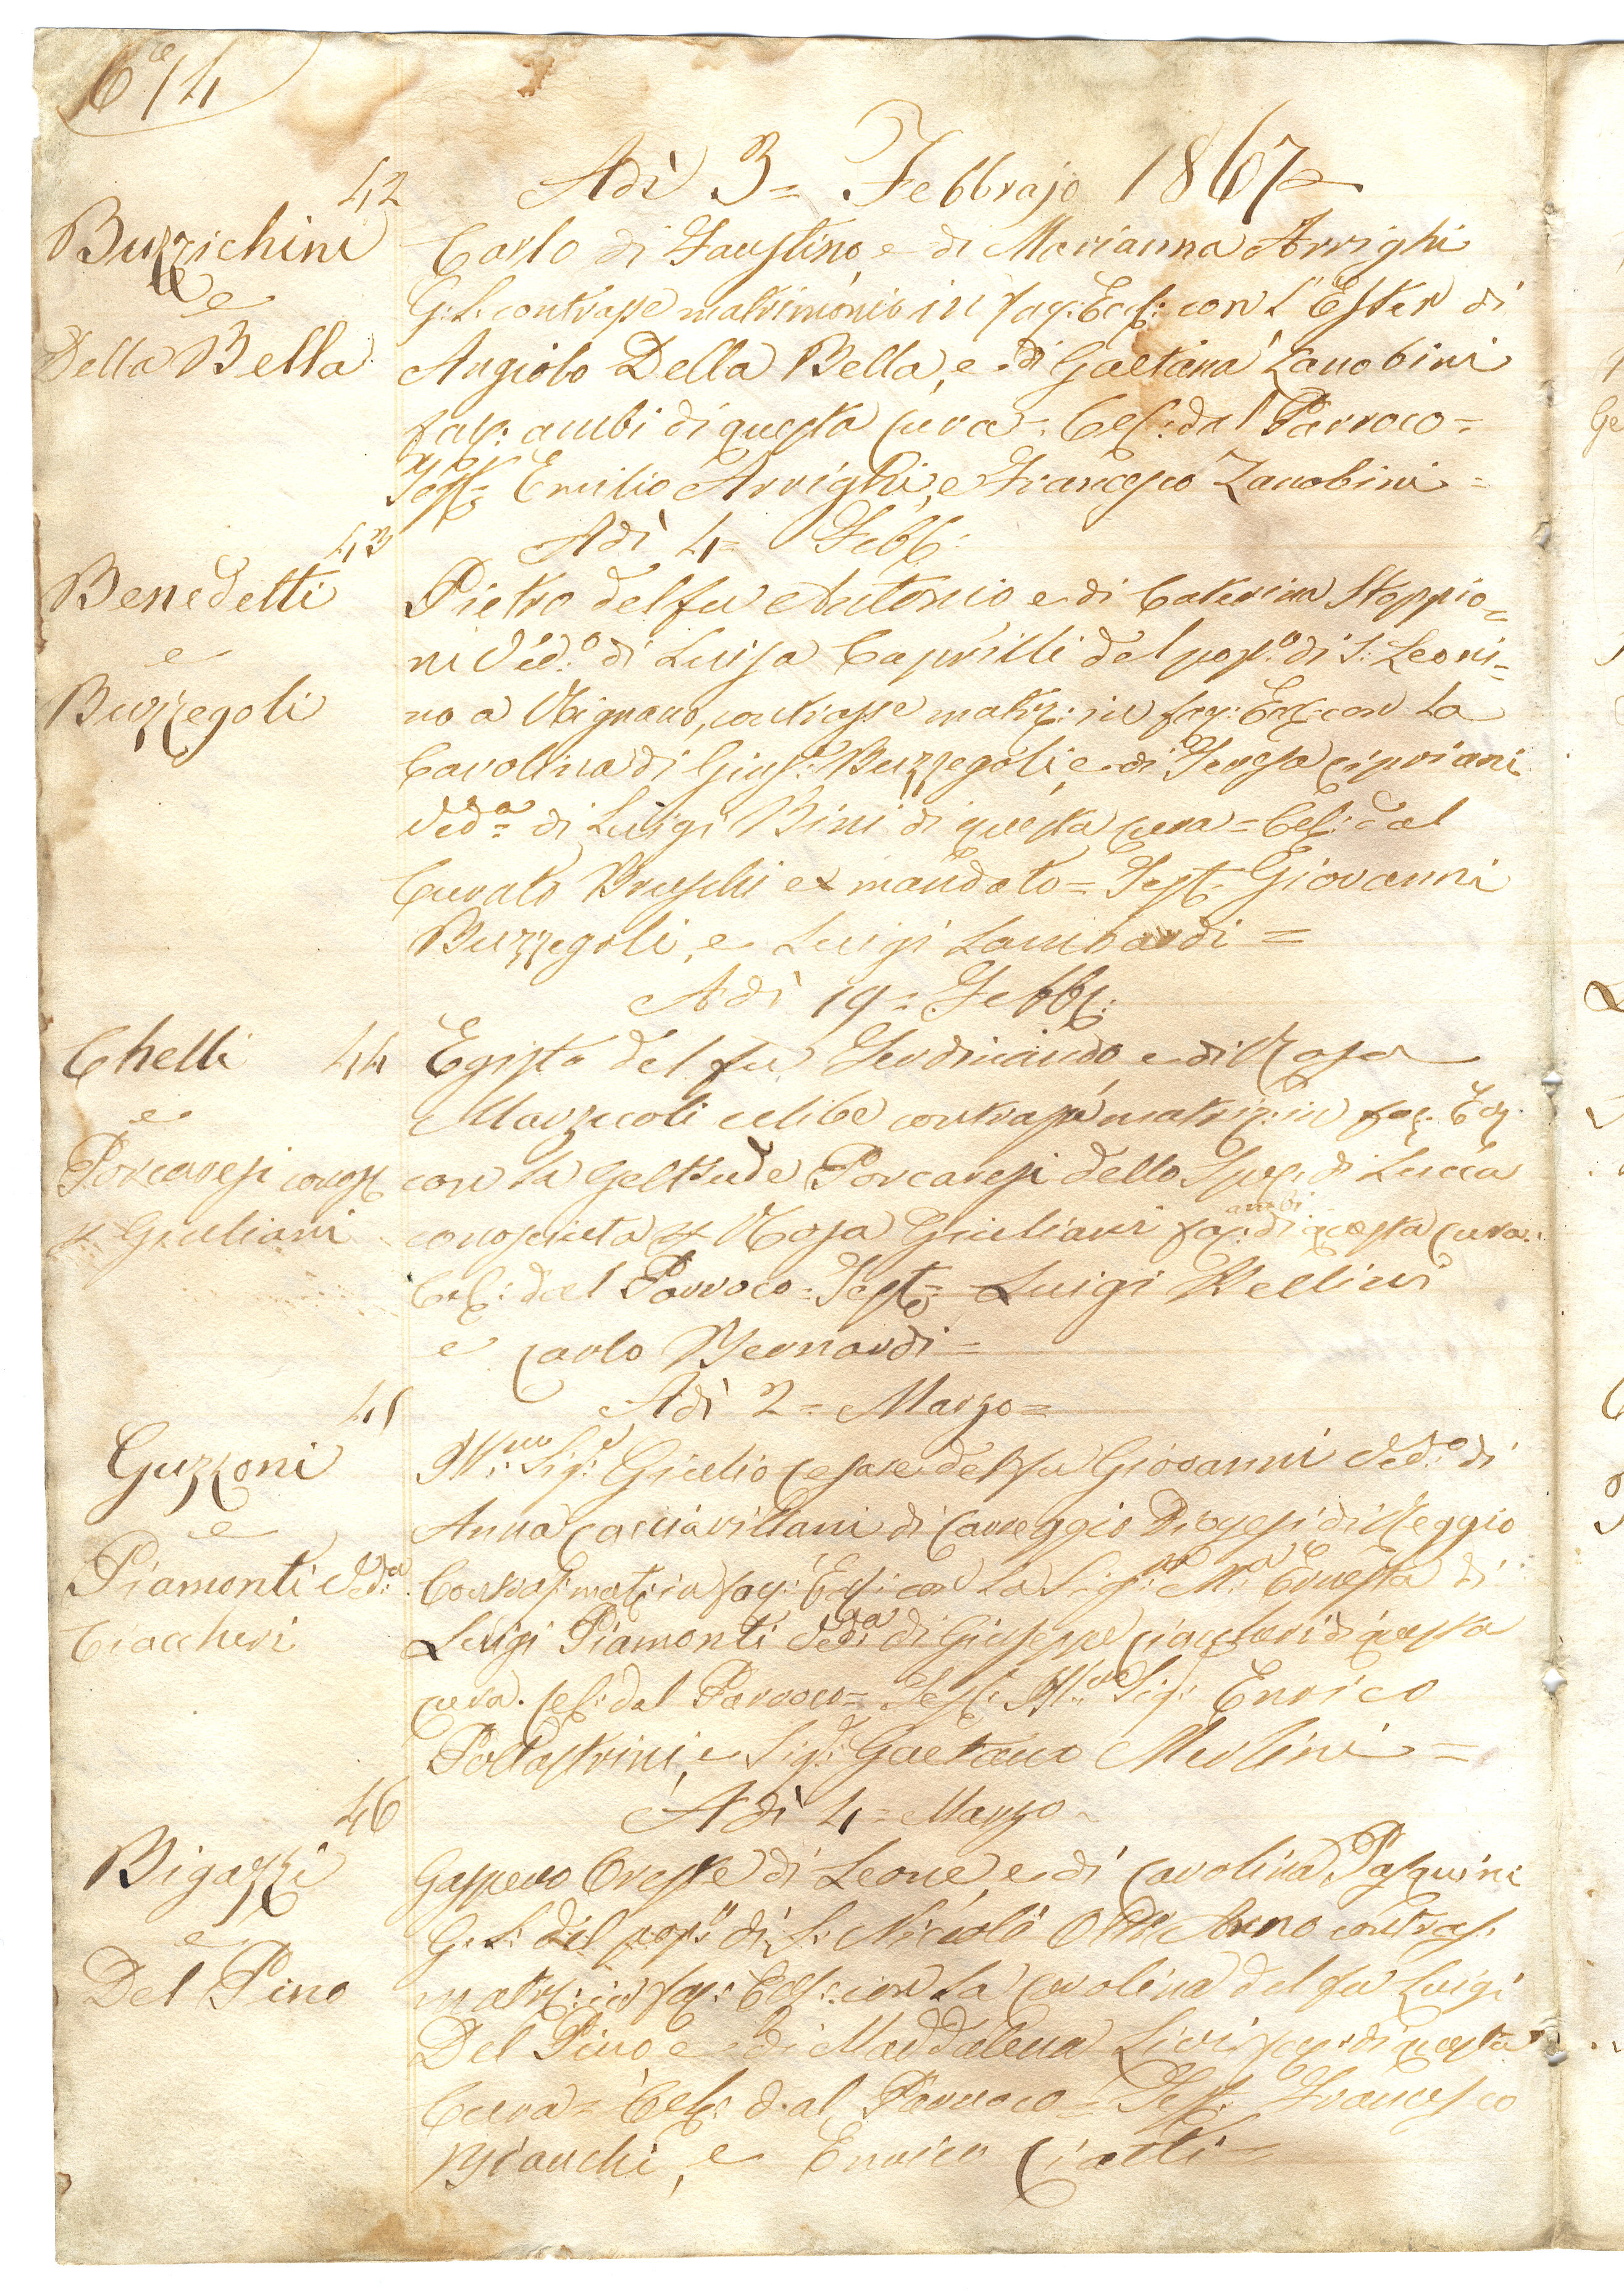 6e/4
42
Adì 3= Febbrajo 1867=
Buzzichini
e
Della Bella
Carlo di Faustino e di Marianna Arrighi
G: L: contrasse matrimonio in fac: Eccl: con l'Ester di
Angiolo Della Bella, e di Gaetana Zanobini
fac: ambi di questa Cura= Cel: dal Parroco=
Test: Emilio Arrighi, e Francesco Zanobini=
43
Adì 4= Febb:
Benedetti
e
Buzzegoli
Pietro del fu Antonio e di Caterina Stoppio=
ni Ved:o di Luisa Caprilli del pop:o di S: Leoni=
no a Vignano, contrasse matr: in fac: Eccl: con la
Carolina di Gius:e Buzzegoli, e di Teresa Cipriani
Ved:a di Luigi Bini di questa Cura= Cel: dal
Curato Bruschi ex mandato= Test: Giovanni
Buzzegoli, e Luigi Lambardi=
Adì 19= Febb:
Chelli 44
e
Porcaresi conos:
x Giuliani
Egisto del fu Ferdinando e di Rosa
Marzocoli celibe contrasse matr: in fac: Ecc:
con la Geltrude Porcaresi dello Sped: di Lucca
conosciuta x Rosa Giuliani fac: ambi di questa Cura.
Cel: dal Parroco= Test: Luigi Bellini
e Carlo Bernardi=
45
Adì 2= Marzo=
Guzzoni
e
Piamonti Ved:a
Ciaccheri
Ill:mo Sig:e Giulio Cesare del fu Giovanni Ved:o di
Anna Cacciavillani di Correggio Diogesi di Reggio
Contras: mat: in fac: Eccl: con la Sig:ra M:a Ernesta di
Luigi Piamonti Ved:a di Giuseppe Ciaccheri di questa
Cura. Cel: dal Parroco= Test: Ill:mo Sig: Enrico
Pollastrini, e Sig: Gaetano Merlini=
46
Adì 4= Marzo
Bigazzi
e
Del Pino
Gaspero Oreste di Leone, e di Carolina Pasquini
G: L: del pop:o di S: Niccolò Oltr'Arno contras:
matr: in fac: Eccl: con la Carolina del fu Luigi
Del Pino e di Maddalena Livi fac: di questa
Cura= Cel: dal Parroco= Test: Francesco
Bianchi, e Enrico Ciatti=